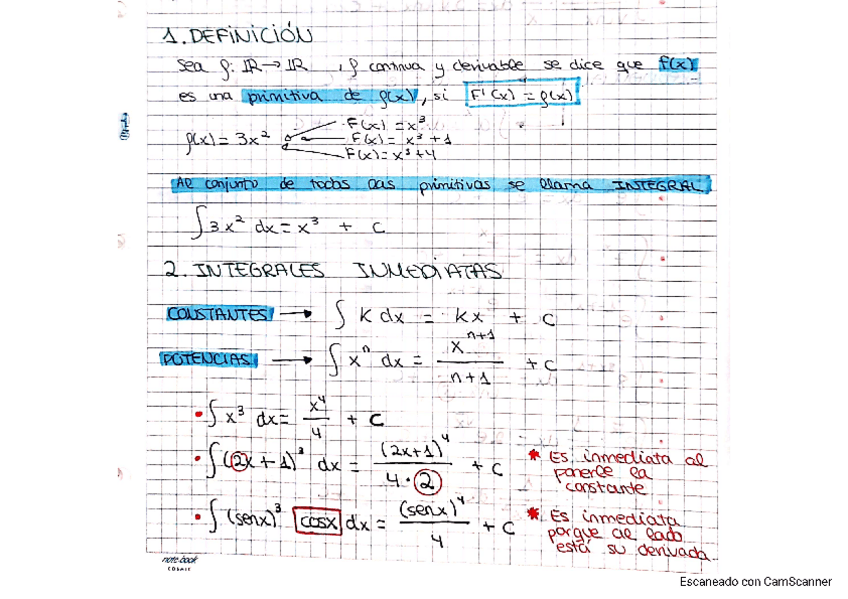 1. DEFINICIÓN
Sea f: ℝ → ℝ, f continua y derivable se dice que f(x)
es una primitiva de f(x), si F'(x) = f(x)
f(x) = 3x²
F(x) = x³
F(x) = x³ + 1
F(x) = x³ + 4
Al conjunto de todas las primitivas se llama INTEGRAL
∫3x² dx = x³ + C
2. INTEGRALES INMEDIATAS
CONSTANTES → ∫ K dx = Kx + C
POTENCIAS → ∫ xⁿ dx = xⁿ⁺¹ / n+1 + C
• ∫ x³ dx = x⁴ / 4 + C
• ∫ (2x + 1)³ dx = (2x+1)⁴ / 4 · 2 + C
* Es inmediata al
ponerle la
constante
• ∫ (senx)³ cosx dx = (senx)⁴ / 4 + C
* Es inmediata
porque al lado
está su derivada
note book
Escaneado con CamScanner